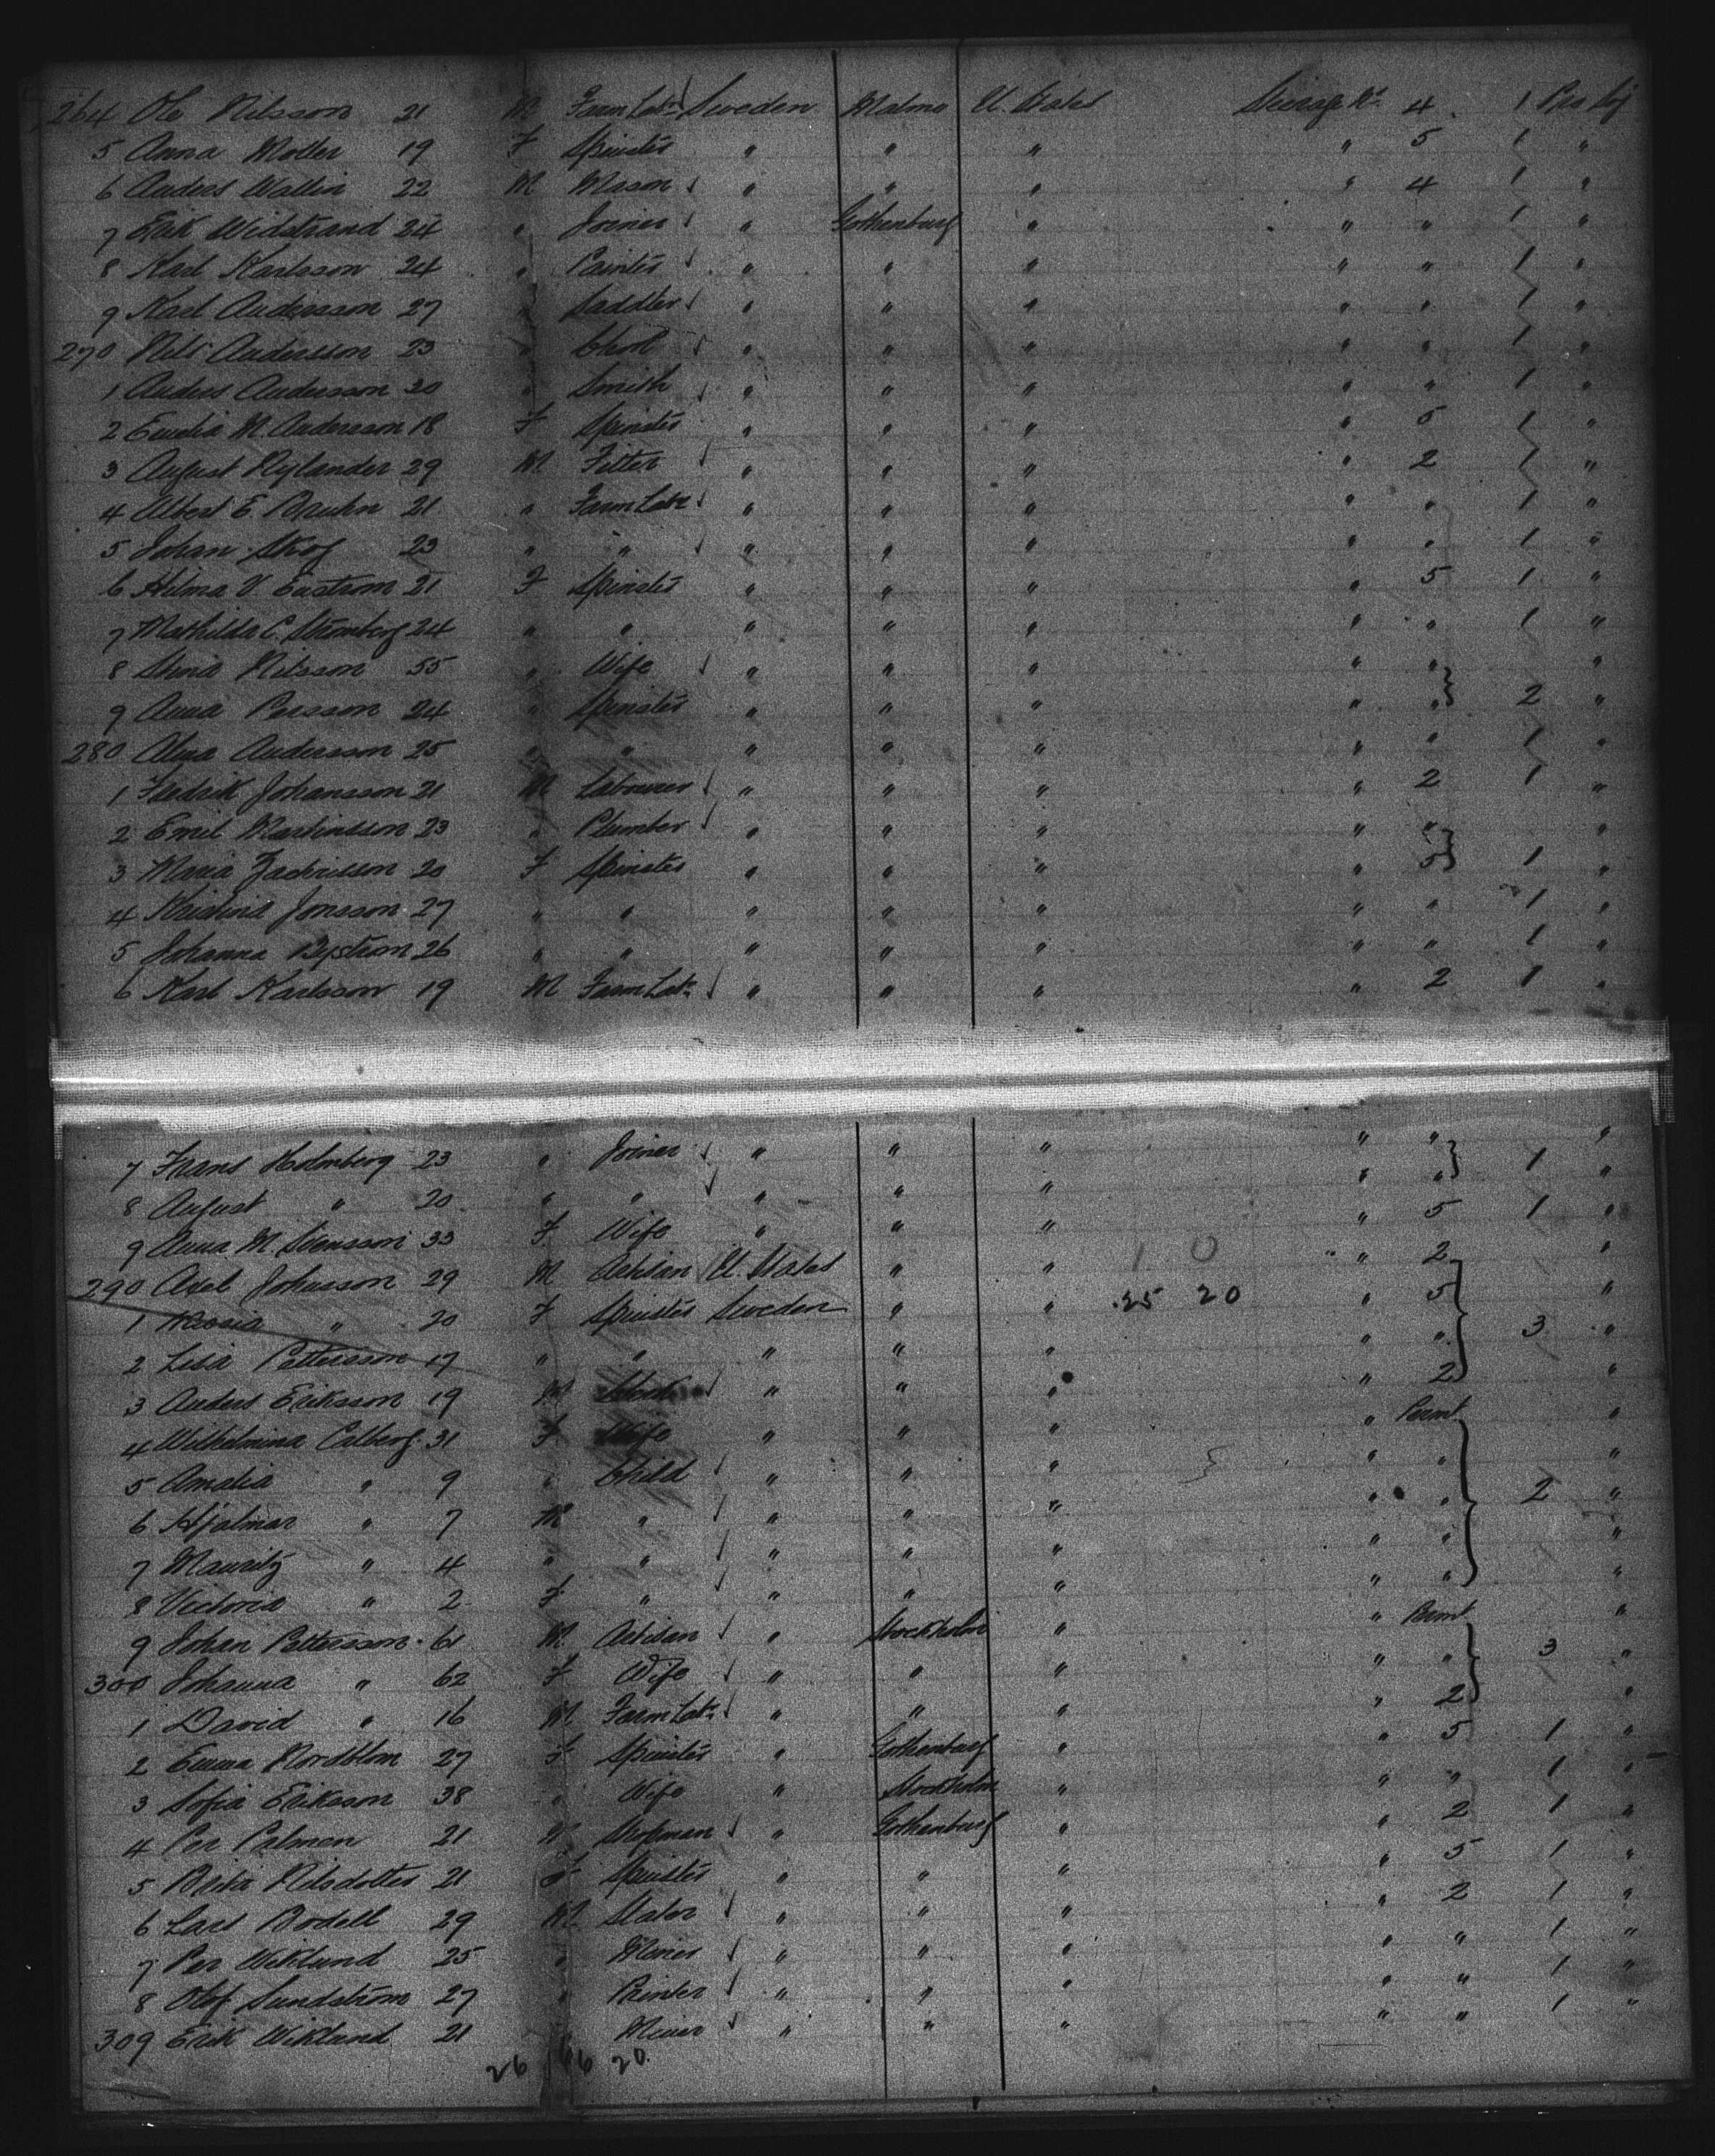 264 Ole Nilsson 21 M Farm Labr Sweden Malmo U. States Steerage No. 4 1 Pro Soj
5 Anna Moller 19 F Spinster " " " " 5 1 "
6 Anders Wallin 22 M Mason " " " " 4 1 "
7 Erik Widstrand 24 " Joiner " Gothenburg " " " 1 "
8 Karl Karlsson 24 " Painter " " " " " 1 "
9 Karl Andersson 27 " Saddler " " " " " 1 "
270 Nils Andersson 23 " Clerk " " " " " 1 "
1 Anders Andersson 30 " Smith " " " " " 1 "
2 Emelia M. Andersson 18 F Spinster " " " " 5 1 "
3 August Nylander 29 M Fitter " " " " 2 1 "
4 Albert E. Bruhn 21 " Farm Labr " " " " " 1 "
5 Johan Skog 23 " " " " " " " 1 "
6 Hilma V. Enstrom 21 F Spinster " " " " 5 1 "
7 Mathilda C. Stromberg 24 " " " " " " " 1 "
8 Stina Nilsson 55 " Wife " " " " " "
9 Anna Persson 24 " Spinster " " " " " 2 "
280 Alma Andersson 25 " " " " " " " 1 "
1 Fredrik Johansson 21 M Labourer " " " " 2 1 "
2 Emil Martinsson 23 " Plumber " " " " " "
3 Maria Zachrisson 20 F Spinster " " " " 5 1 "
4 Kristina Jonsson 27 " " " " " " " 1 "
5 Johanna Bystrom 26 " " " " " " " 1 "
6 Karl Karlsson 19 M Farm Labr " " " " 2 1 "
7 Frans Holmberg 23 " Joiner " " " " " 1 "
8 August " 20 " " " " " " " "
9 Anna M. Svensson 33 F Wife " " " " 5 1 "
290 Axel Johansson 29 M Artisan U. States " " 1 0 " 2 "
1 Maria " 20 F Spinster Sweden " " 25 20 " 5 "
2 Lisa Pettersson 17 " " " " " " " 3 "
3 Anders Eriksson 19 M " " " " 2 "
4 Wilhelmina Calberg 31 F Wife " " " " Permt "
5 Amalia " 9 " Child " " " " " "
6 Hjalmar " 7 M " " " " " " 2 "
7 Mauritz " 4 " " " " " " " "
8 Victoria " 2 F " " " " " " "
9 Johan Pettersson 61 M Artisan " Stockholm " " Permt "
300 Johanna " 62 F Wife " " " " " 3 "
1 David " 16 M Farm Labr " " " " 2 "
2 Emma Nordblom 27 F Spinster " Gothenburg " " 5 1 "
3 Sofia Eriksson 38 " Wife " Stockholm " " " 1 "
4 Per Palmen 21 M Shopman " Gothenburg " " 2 1 "
5 Brita Nilsdotter 21 F Spinster " " " " 5 1 "
6 Lars Bodell 29 M Slater " " " " 2 1 "
7 Per Wiklund 25 " Miner " " " " " 1 "
8 Olof Sundstrom 27 " Printer " " " " " 1 "
309 Erik Wiklund 21 " Miner " " " " " 1 "
26 20